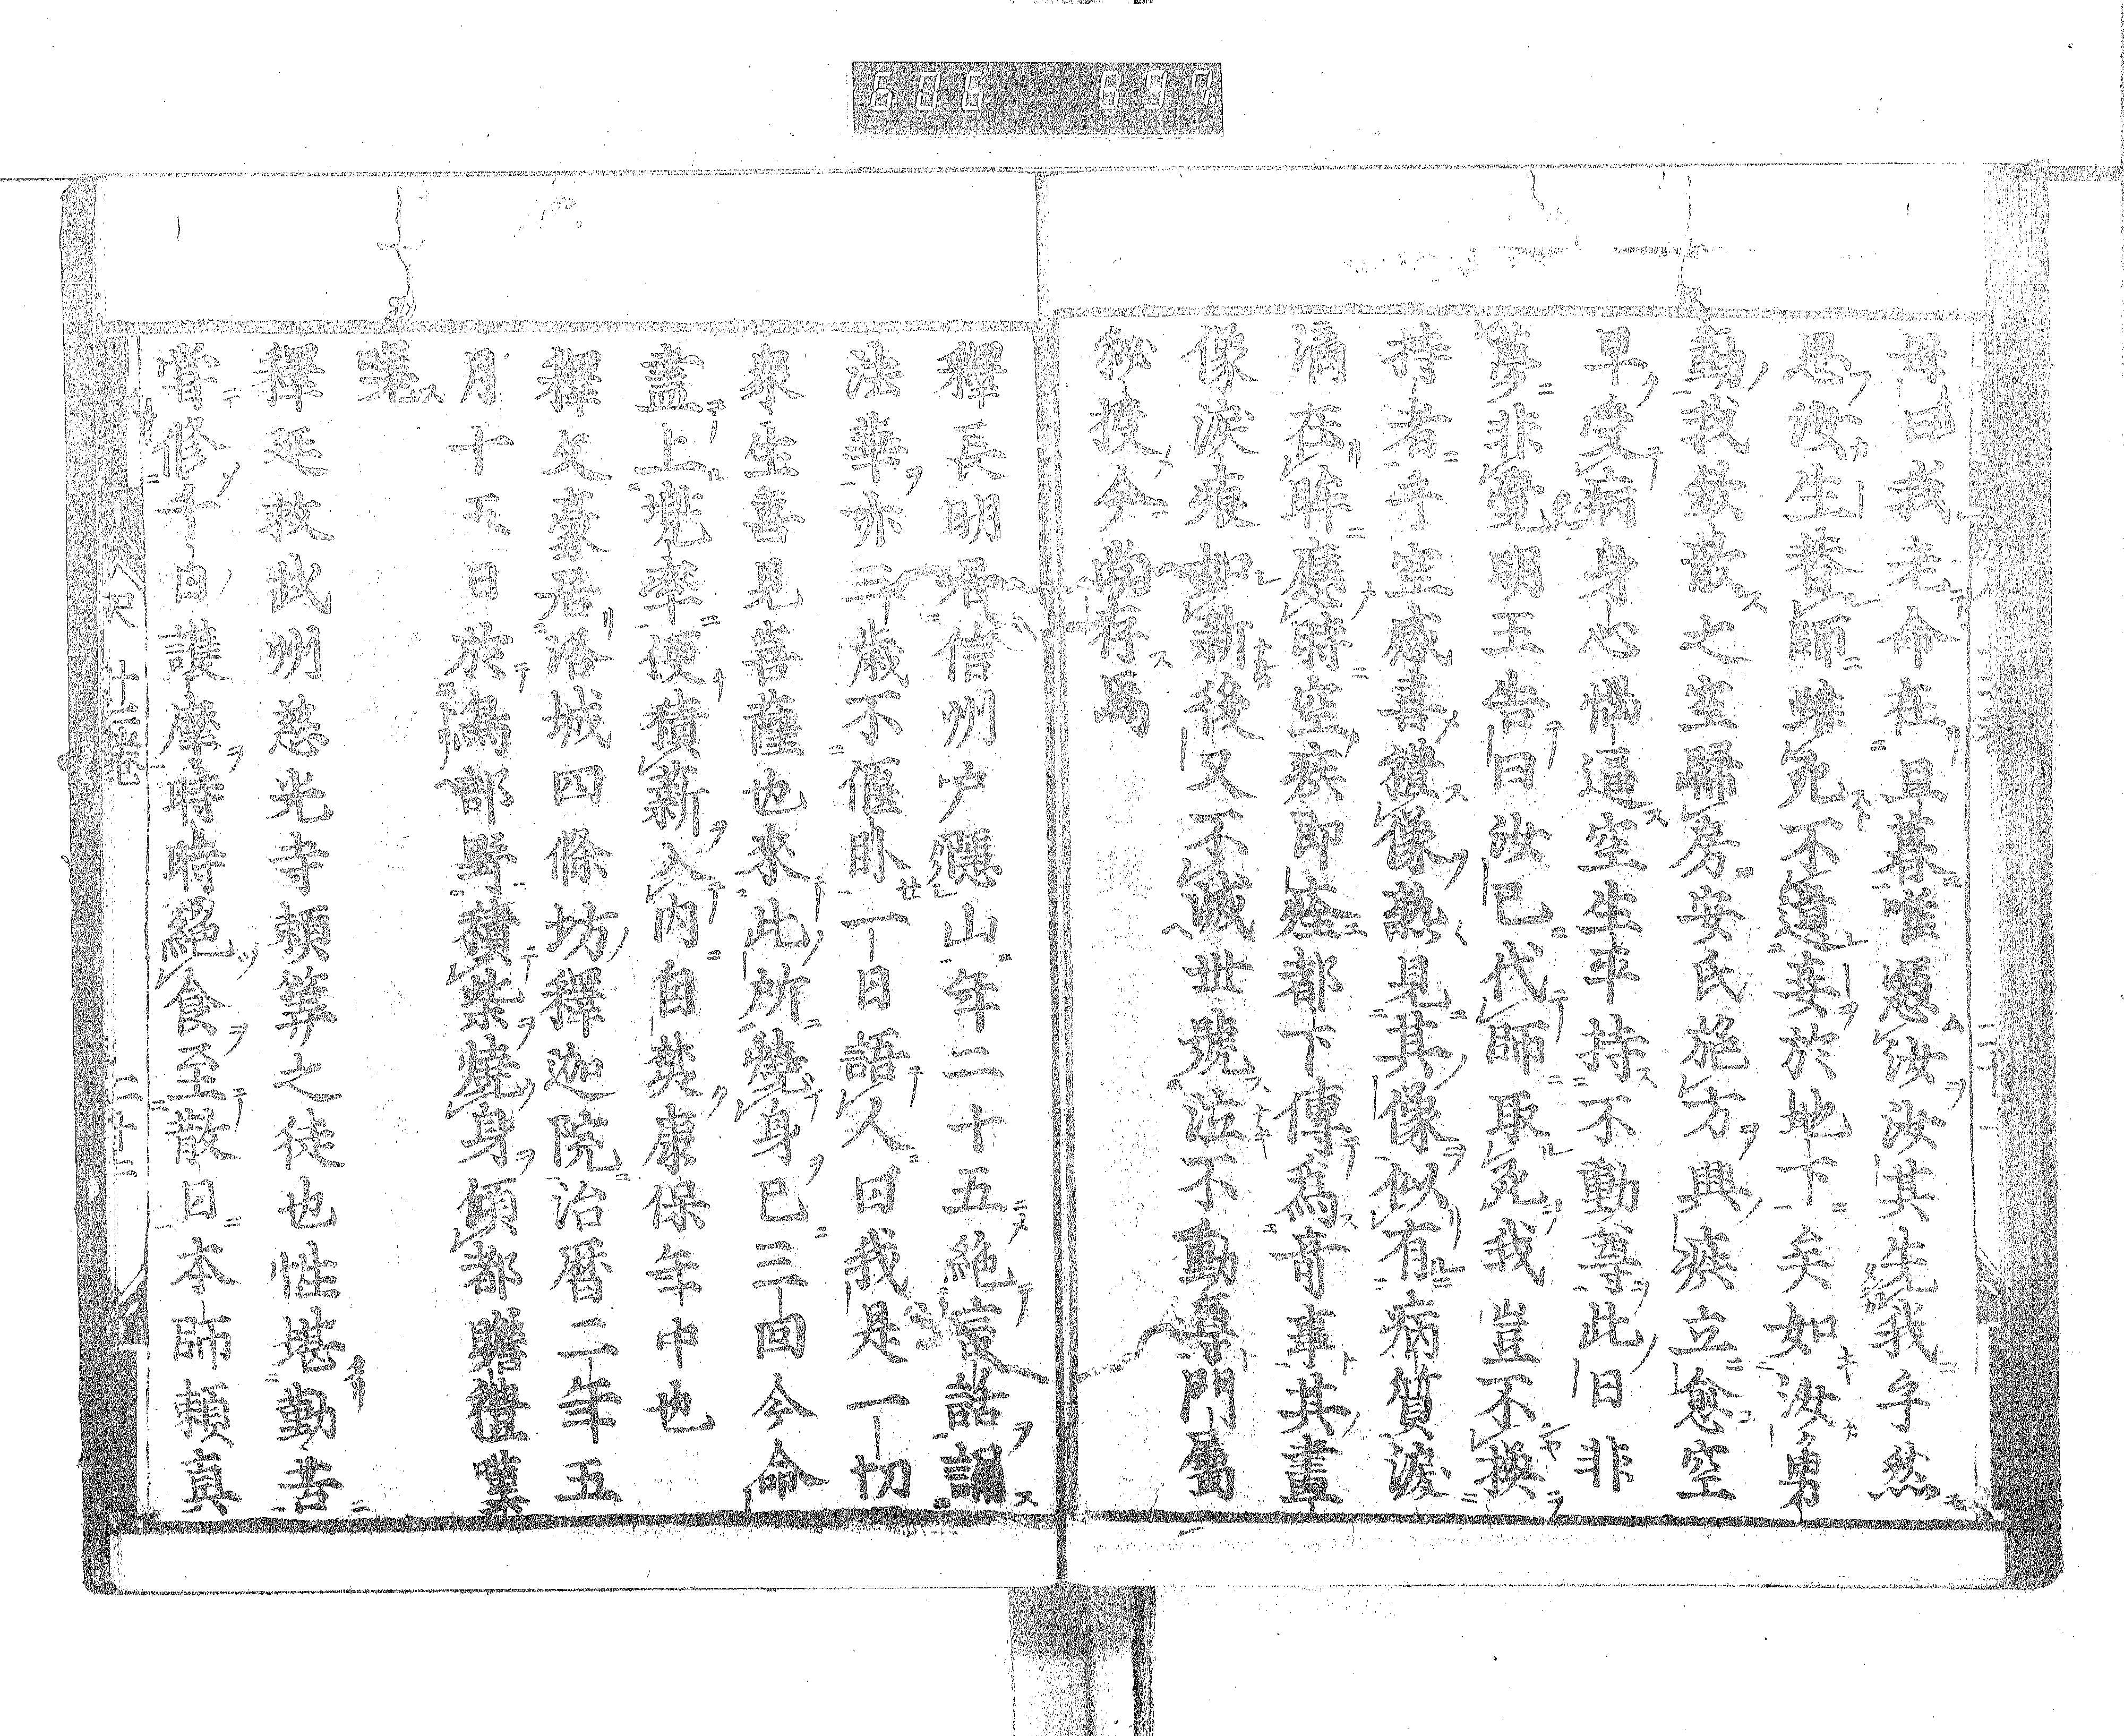 606 697
母曰我老命在旦暮唯憑汝汝其先我乎然
思汝生替師雖死不遺妾於地下矣如汝勇
勤我欽歎之空歸房安氏施方興疾立愈空
早受病身心惱逼空生年持不動尊此日非
夢非覺明王告曰汝已代師取死我豈不換
持者乎空感喜禮像熟見其像似有病質淚
滴在眸應時空疾即痊都下傳為奇事其畫
像淚痕如新後又不滅世號泣不動尊門屬
秘授今尚存焉
釋長明居信州戶隱山年二十五絕言語誦
法華亦三歲不偃臥一日語人曰我是一切
衆生喜見菩薩也來此所燒身已三回今命
盡上兜率便積薪入內自焚康保年中也
釋文豪居洛城四條坊釋迦院治曆二年五
月十五日於鳥部野積柴燒身傾都瞻禮嘆
嗟
釋延救武州慈光寺賴筭之徒也性堪勤苦
嘗修千日護摩時時絕食至散日本師賴真
尺 十二卷 二十二